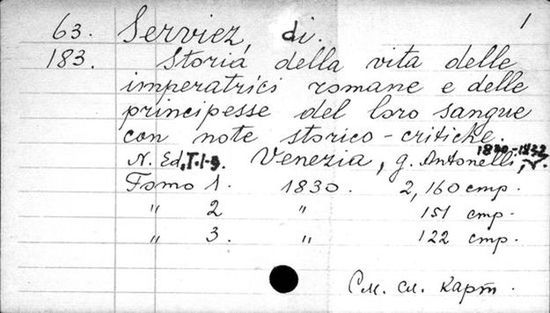 1
63. Serviez, di.
183. Storia della vita delle
imperatrici romane e delle
principesse del loro sangue
con note storico-critiche.
1830-1832
N. Ed. T.1-3. Venezia, g. Antonelli,
Tomo 1. 1830. 2, 160 стр.
" 2 " 151 стр.
" 3. " 122 стр.
См. сл. карт.